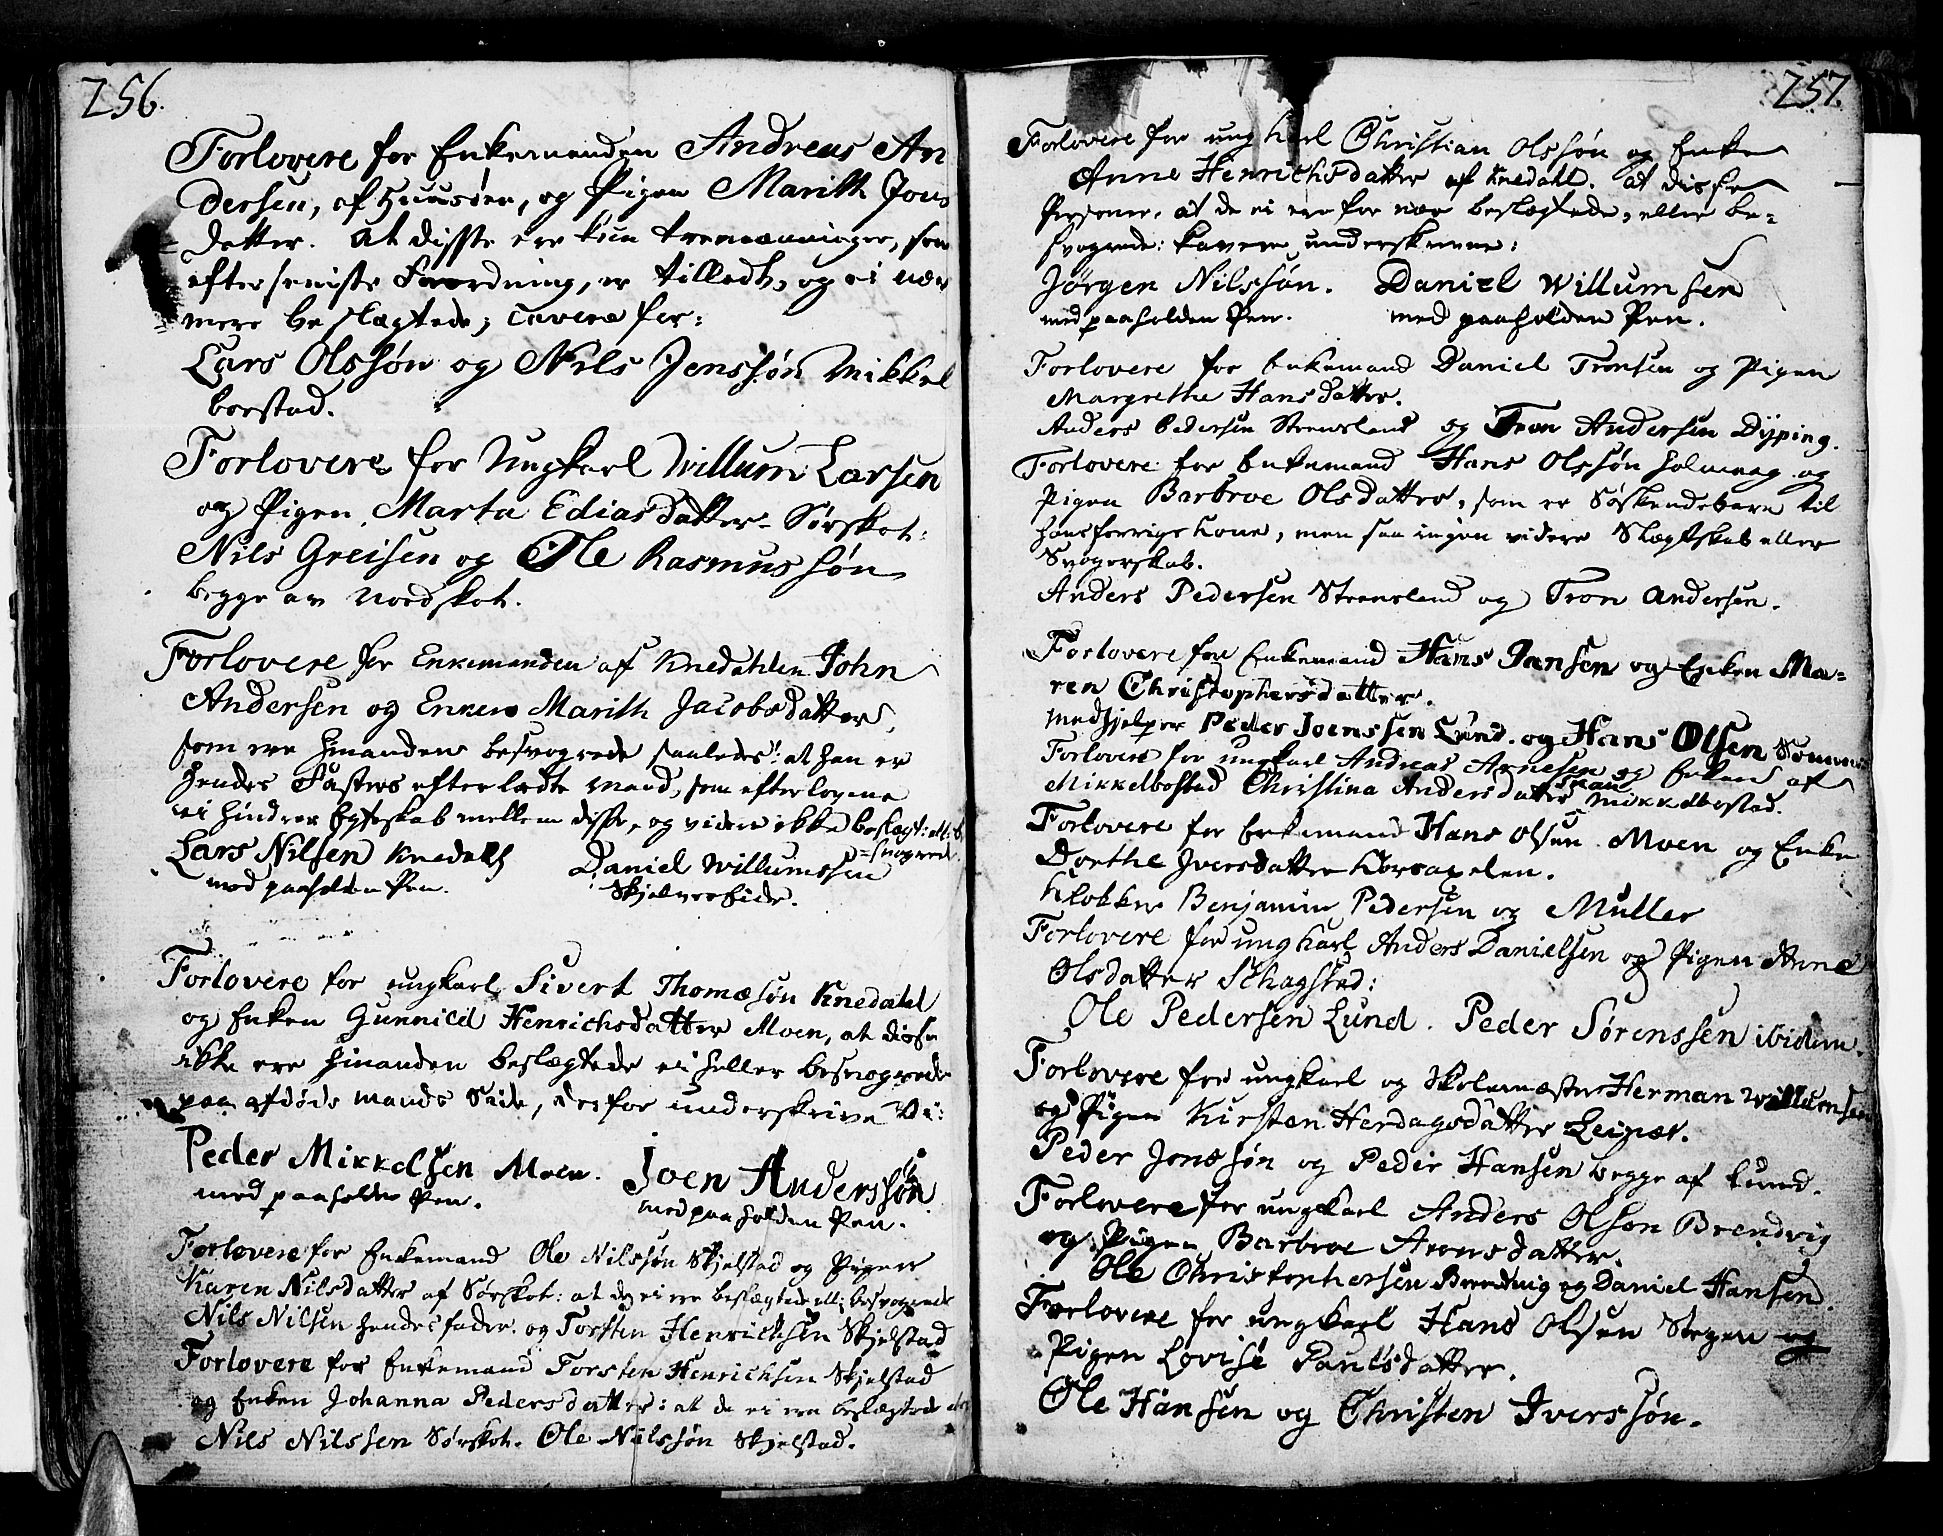 256.
Forlovere for Enkemanden Andreas An
dersen, af Huusöen, og Pigen Marith Jons
datter. At disse ere kun tremænninger, som
efter seniste Forordning, er tilladt, og ei nær
mere beslægtede; Cavere for:
Lars Olssøn og Nils Jenssøn Mikkel
borstad.
Forlovere for Ungkarl Willum Larsen
og Pigen Marta Ediasdatter Sørskot:
Nils Greisen og Ole Rasmussøn
begge av Nordskot.
Forlovere for Enkemanden af Knedahlen John
Andersen og Enken Marith Jacobsdatter,
som ere hinanden besvogrede saaledes: at han er
hendes Fasters efterladte Mand, som efter lovene
ei hindrer Egteskab mellem disse, og videre ikke beslægt: ell: b
=svogrede
Lars Nilsen Knedahl Daniel Willumssen
med paaholden Pen. Skjelvereide.
Forlovere for ungkarl Sivert Thomæsøn Knedahl
og Enken Gunnild Henrichsdatter Moen, at disse
ikke ere hinanden beslægtede ei heller besvogrede
paa afdøde mands Side, derfor underskrive Vi:
Peder Mikkelsen Moen. Joen Anderssøn
med paaholden Pen. med paaholden Pen.
Forlovere for Enkemand Ole Nilssøn Skjelstad og Pigen
Karen Nilsdatter af Sørskot: at de ei ere beslægtede ell: besvogrede
Nils Nilsen hendes fader. og Torsten Henrichsen Skjelstad
Forlovere for Enkemand Torsten Henrichsen Skjelstad
og Enken Johanna Pedersdatter: at de ei ere beslægtede
Nils Nilssen Sørskot. Ole Nilssøn Skjelstad.
257.
Forlovere for ungkarl Christian Olssøn og Enke
Anne Henrichsdatter af Knedahl. at disse
Personer, at de ei ere for nær beslægtede, eller be=
svogrede: kavere underskrevne:
Jørgen Nilssøn. Daniel Willumsen
med paaholden Pen. med paaholden Pen.
Forlovere for Enkemand Daniel Tronsen og Pigen
Margrethe Hansdatter.
Anders Pedersen Strensland og Tron Andersen Dyping.
Forlovere for Enkemand Hans Olssøn Holmaag og
Pigen Barbroe Olsdatter, som er Søskendebarn til
hans forrige Kone, men saa ingen videre Slægtskab eller
Svogerskab.
Anders Pedersen Strensland og Tron Andersen.
Forlovere for Enkemand Hans Jansen og Enken Ma=
ren Christophersdatter.
Medhjelper Peder Joenssen Lund. og Hans Olsen
Forlovere for ungkarl Andreas Arnesen og Enken af
Mikkelbostad Christina Andersdatter Mikkelbostad.
Forlovere for Enkemand Hans Olsen Moen og Enke
Dorthe Iversdatter
Klokker Benjamin Pedersen og Muller
Forlovere for ungkarl Anders Danielsen og Pigen Anne
Olsdatter Schagstad:
Ole Pedersen Lund. Peder Sørenssen ibidem.
Forlovere for ungkarl og Skolemæster Herman Willumsen
og Pigen Kirsten Herdagsdatter Leinæs.
Peder Jonssøn og Peder Hansen begge af Lund.
Forlovere for ungkarl Anders Olsøn Brendvig
og Pigen Barbroe Aronsdatter.
Ole Christophersen Brendvig og Daniel Hansen.
Forlovere for ungkarl Hans Olsen Stegen og
Pigen Lovise Paulsdatter.
Ole Hansen og Christen Iverssøn.